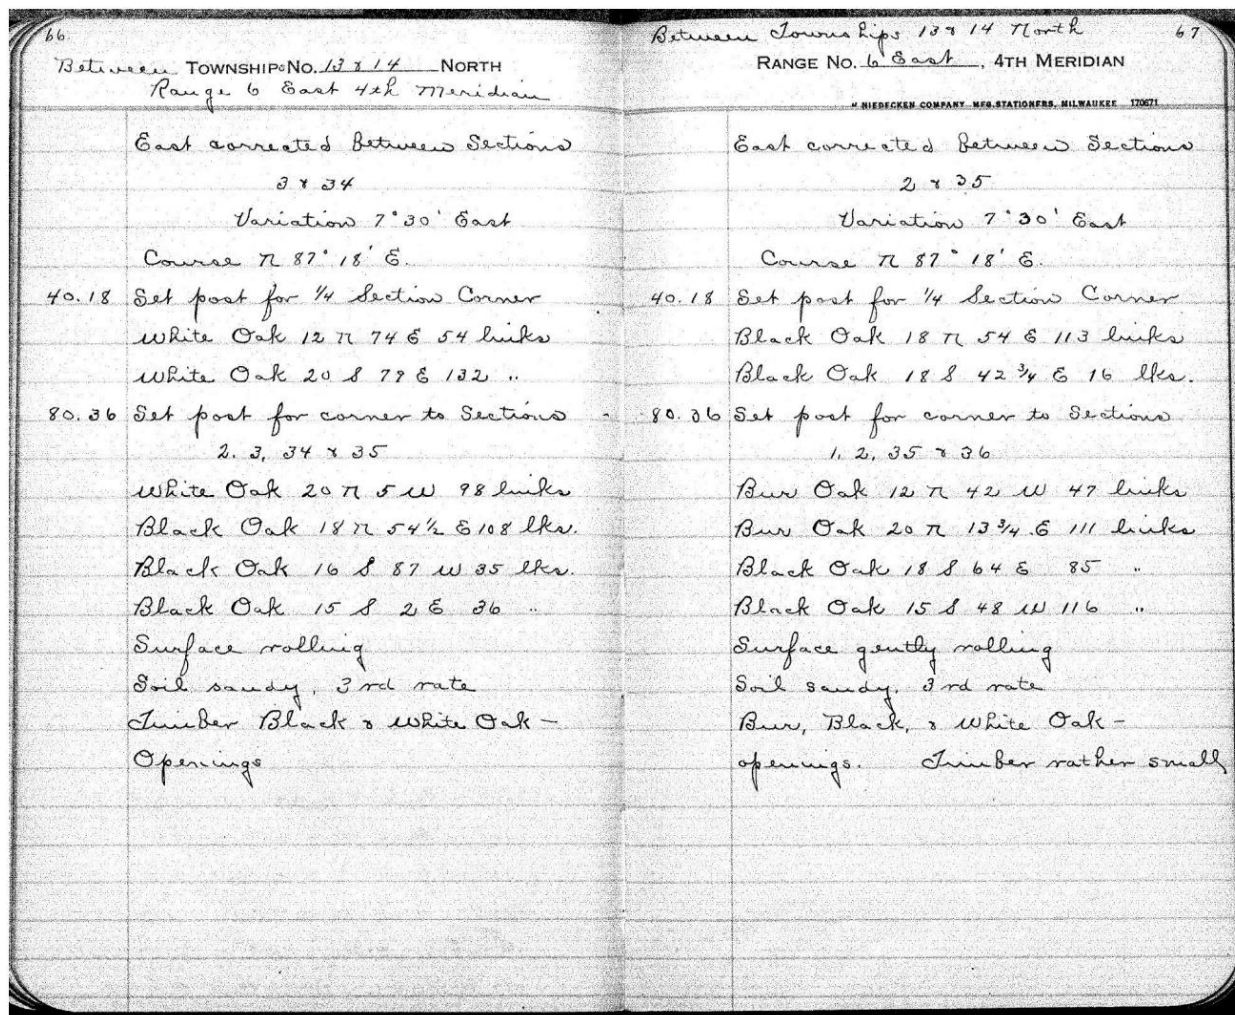 66
Between TOWNSHIPS NO. 13 & 14 NORTH
Range 6 East 4th Meridian
East corrected Between Sections
3 & 34
Variation 7° 30' East
Course N 87° 18' E.
40.18 Set post for 1/4 Section Corner
White Oak 12 N 74 E 54 links
White Oak 20 S 79 E 132 "
80.36 Set post for corner to Sections
2. 3, 34 & 35
White Oak 20 N 5 W 98 links
Black Oak 18 N 54 1/2 E 108 lks.
Black Oak 16 S 87 W 35 lks.
Black Oak 15 S 2 E 36 "
Surface rolling
Soil sandy, 3rd rate
Timber Black & White Oak –
Openings
Between Townships 13 & 14 North 67
RANGE NO. 6 East, 4TH MERIDIAN
NIEDECKEN COMPANY MFG. STATIONERS, MILWAUKEE 170671
East corrected Between Sections
2 & 35
Variation 7° 30' East
Course N 87° 18' E.
40.18 Set post for 1/4 Section Corner
Black Oak 18 N 54 E 113 links
Black Oak 18 S 42 3/4 E 16 lks.
80.36 Set post for corner to Sections
1, 2, 35 & 36
Bur Oak 12 N 42 W 47 links
Bur Oak 20 N 13 3/4 E 111 links
Black Oak 18 S 64 E 85 "
Black Oak 15 S 48 W 116 "
Surface gently rolling
Soil sandy. 3rd rate
Bur, Black, & White Oak –
openings. Timber rather small